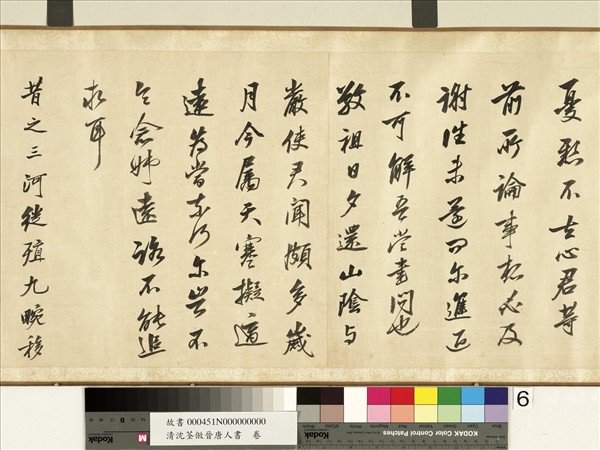 憂愁不去心君等
前所論事想必及
謝未還可尔進退
不可解吾當書問也
敬祖日夕還山陰與
嚴使君聞頗多歲
月今屬天寒擬適
遠為當奈何尔豈不
令念姊遠路不能追
求耳
昔之三河徙殖九畹移
故書 000451N000000000
清沈荃倣晉唐人書 卷
Kodak
M
KODAK Color Control Patches
6